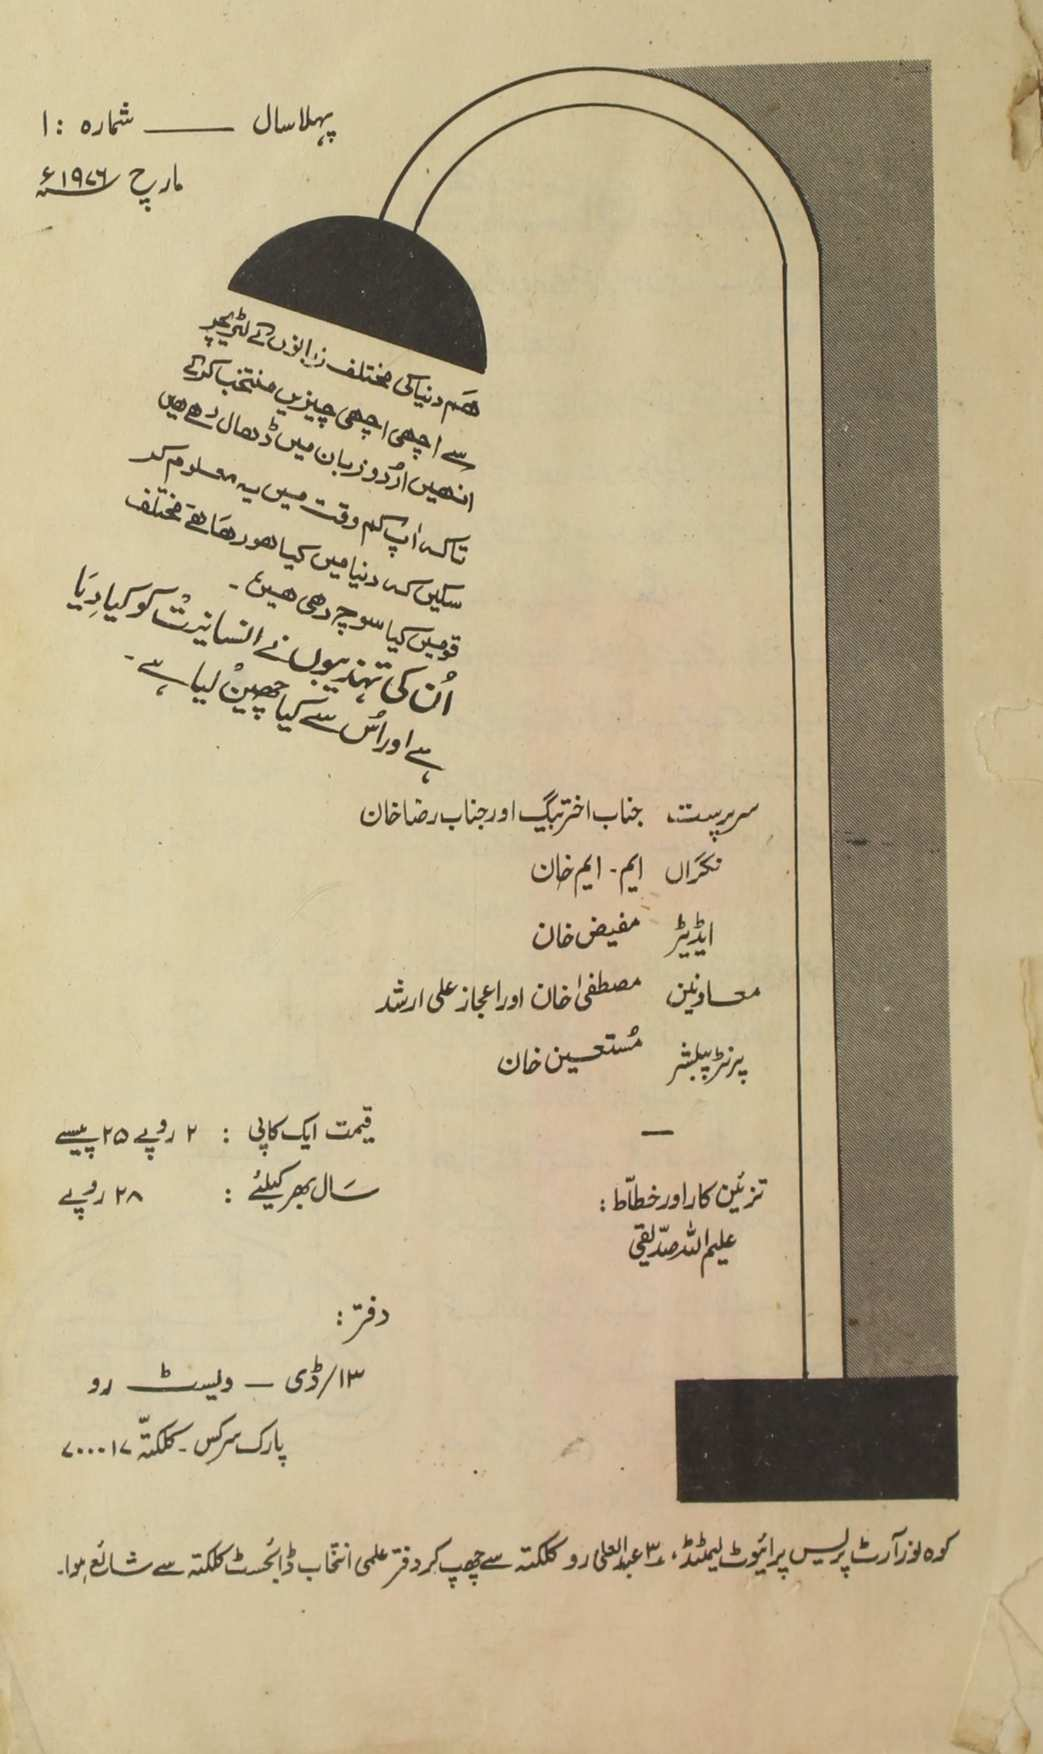 پہلا سال ــــــ شمارہ : ۱
مارچ ۱۹۷۶ء
ھم دنیا کی مختلف زبانوں کے لٹریچر
سے اچھی اچھی چیزیں منتخب کرکے
انھیں اُردو زبان میں ڈھال رھے ھیں
تاکہ آپ کم وقت میں یہ معلوم کر
سکیں کہ دنیا میں کیا ھو رھا ھے مختلف
قومیں کیا سوچ رھی ھیں۔
اُن کی تہذیبوں نے انسانیت کو کیا دِیَا
ہے اور اُس سے کیا چھین لیا ہے۔
سرپرست جناب اختر بیگ اور جناب رضا خان
نگراں ایم۔ ایم خان
ایڈیٹر مفیض خان
معاونین مصطفیٰ خان اور اعجاز علی ارشد
پرنٹر پبلشر مُستعین خان
قیمت ایک کاپی : ۲ روپے ۲۵ پیسے
سَال بھر کیلئے : ۲۸ روپے
تزئین کار اور خطاّط :
علیم اللہ صدّیقی
دفتر :
۱۳/ڈی ــ ویسٹ رو
پارک سرکس۔ کلکتہّ ۷۰۰۰۱۷
کوہ نور آرٹ پریس پرائیوٹ لیمٹڈ، عبدالعلی رو کلکتہ سے چھپ کر دفتر علمی انتخاب ڈائجسٹ کلکتہ سے شائع ہوا۔